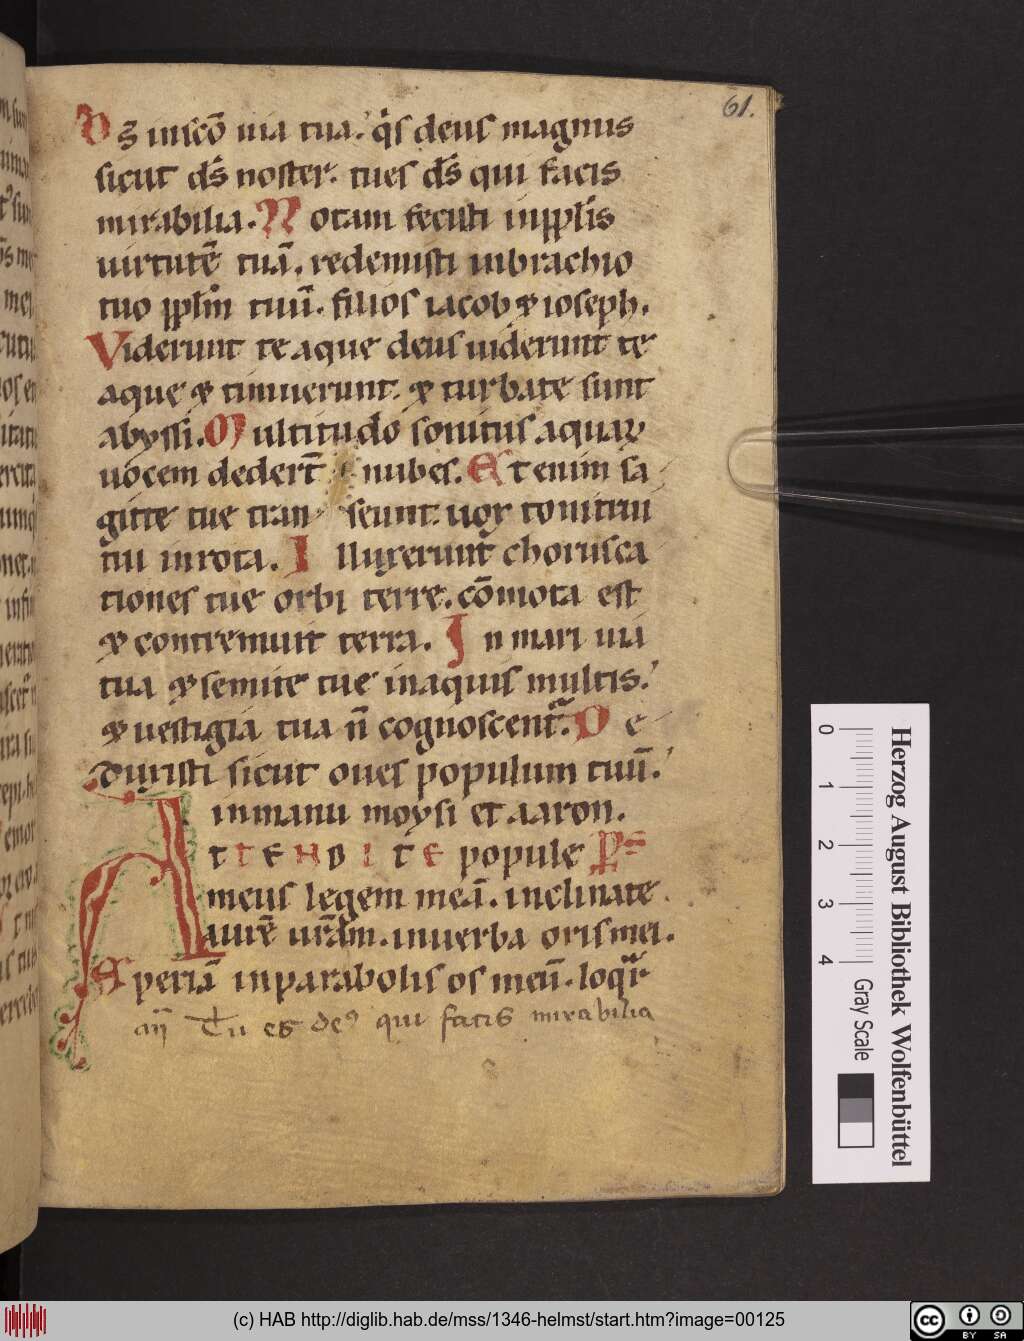 61.
Ds̄ insc̄o uia tua. q̇s deus magnus
sicut ds̄ noster. tu es ds̄ qui facis
mirabilia. Notam fecisti in ppl̄is
uirtutē tuā. redemisti in brachio
tuo ppl̄m tuū. filios iacob & ioseph.
Viderunt te aque deus uiderunt te
aque & timuerunt. & turbate sunt
abyssi. Multitudo sonitus aquaꝝ
uocem dedert̄ nubes. Etenim sa
gitte tue tran seunt. uox tonitrui
tui in rota. Illuxerunt chorusca
tiones tue orbi terre. cōmota est
& contremuit terra. In mari uia
tua & semite tue in aquis multis.
& uestigia tua n̄ cognoscentr̄. De
duxisti sicut oues populum tuū.
in manu moysi et aaron.
ATTENDITE popule
meus legem meā. inclinate
aurē urām. in uerba oris mei.
Aperiā in parabolis os meū. loqr̄
Tu es deꝰ qui facis mirabilia
0 1 2 3 4
Gray Scale
Herzog August Bibliothek Wolfenbüttel
(c) HAB http://diglib.hab.de/mss/1346-helmst/start.htm?image=00125
cc BY SA